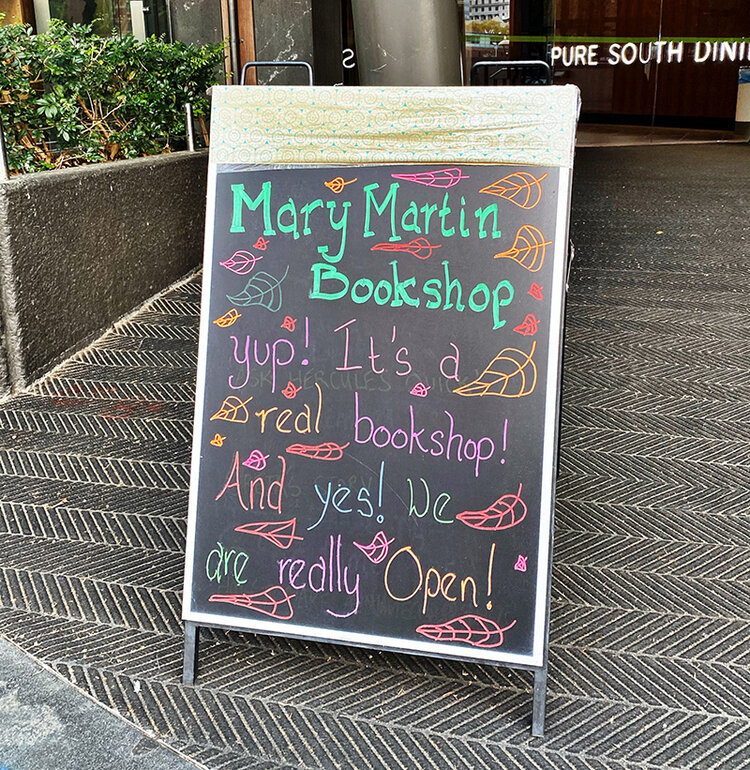 S
PURE SOUTH DINI
Mary Martin
Bookshop
yup! It's a
real bookshop!
And yes! We
are really Open!